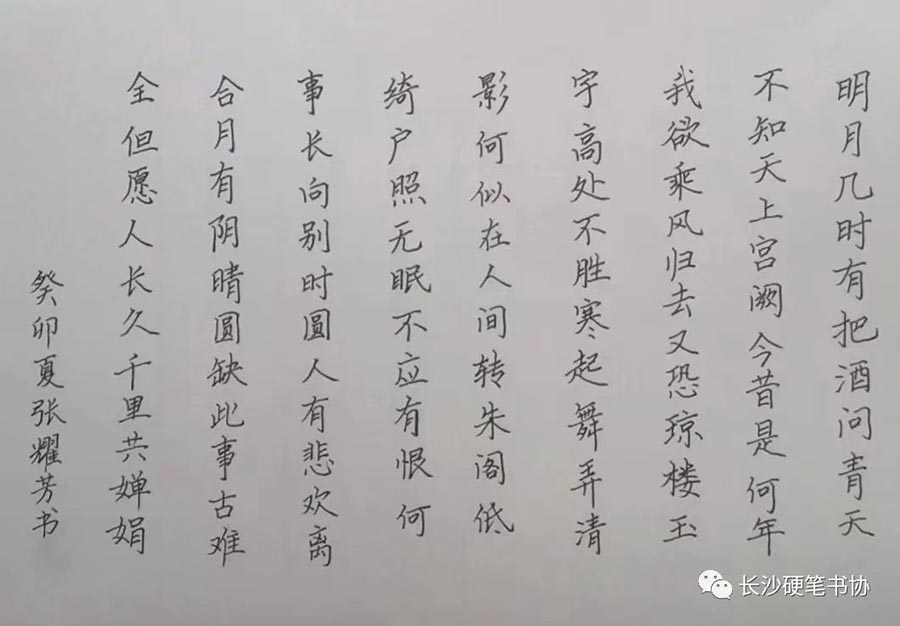 明月几时有把酒问青天
不知天上宫阙今昔是何年
我欲乘风归去又恐琼楼玉
宇高处不胜寒起舞弄清
影何似在人间转朱阁低
绮户照无眠不应有恨何
事长向别时圆人有悲欢离
合月有阴晴圆缺此事古难
全但愿人长久千里共婵娟
癸卯夏张耀芳书
长沙硬笔书协